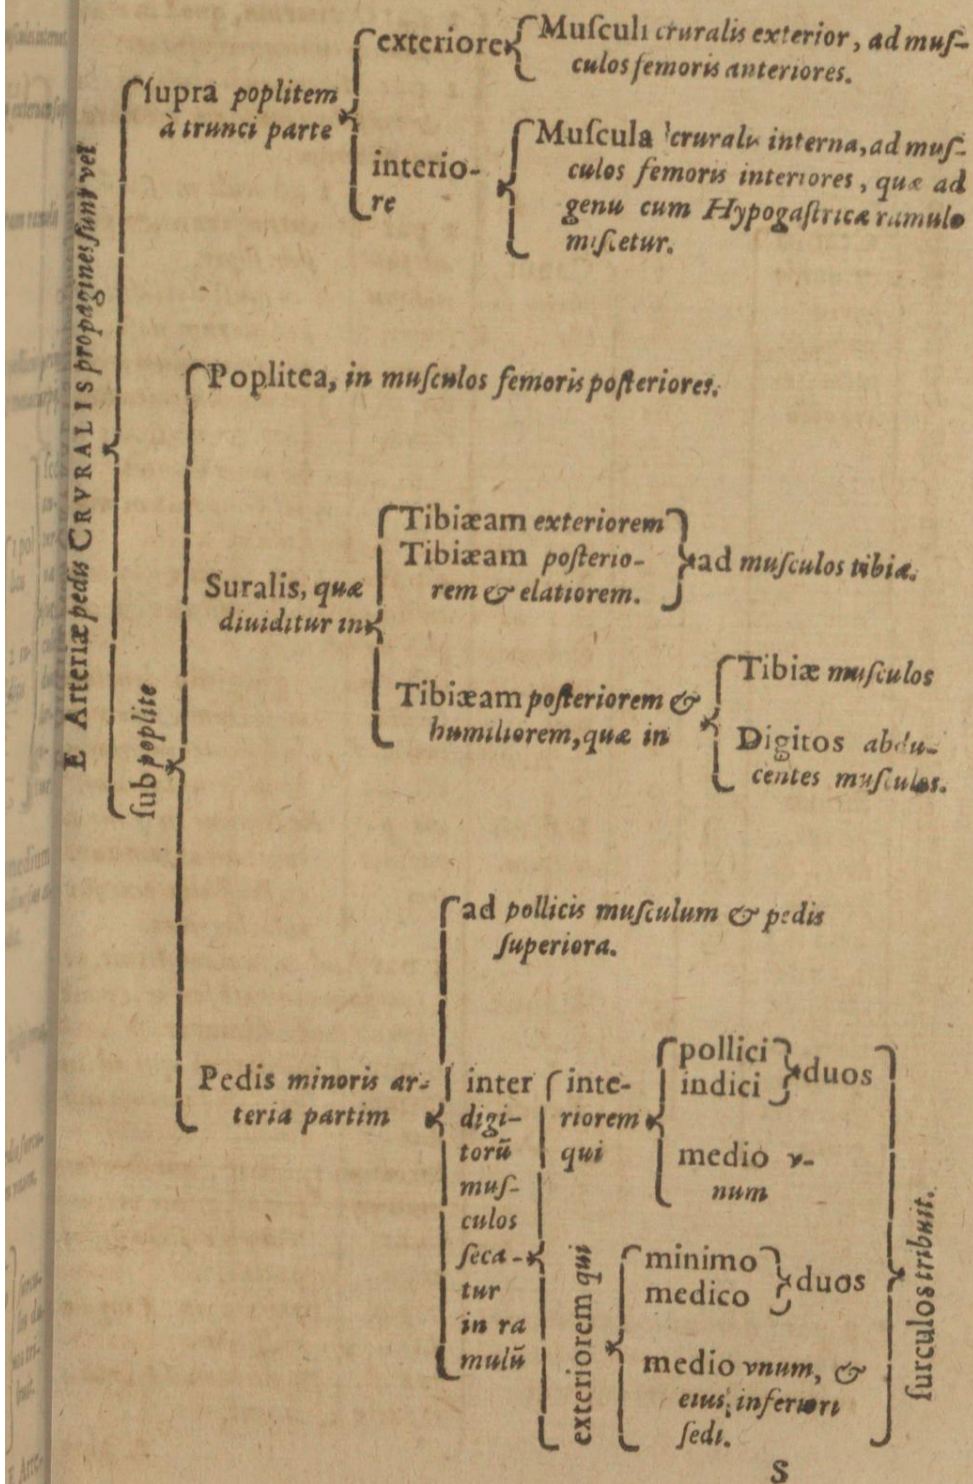 E Arteriæ pedis CRVRALIS propagines sunt vel
ſupra poplitem
à trunci parte
exteriore
Muſculi cruralis exterior, ad muſ-
culos femoris anteriores.
interio-
re
Muſcula cruralis interna, ad muſ-
culos femoris interiores, quæ ad
genu cum Hypogaſtricæ ramulo
miſcetur.
ſub poplite
Poplitea, in muſculos femoris poſteriores.
Suralis, quæ
diuiditur in
Tibiæam exteriorem
Tibiæam poſterio-
rem & elatiorem.
ad muſculos tibiæ.
Tibiæam poſteriorem &
humiliorem, quæ in
Tibiæ muſculos
Digitos abdu-
centes muſculos.
Pedis minoris ar-
teria partim
ad pollicis muſculum & pedis
ſuperiora.
inter
digi-
torũ
muſ-
culos
ſeca-
tur
in ra
mulũ
inte-
riorem
qui
pollici
indici
duos
medio v-
num
exteriorem qui
minimo
medico
duos
medio vnum, &
eius inferiori
ſedi.
ſurculos tribuit.
S